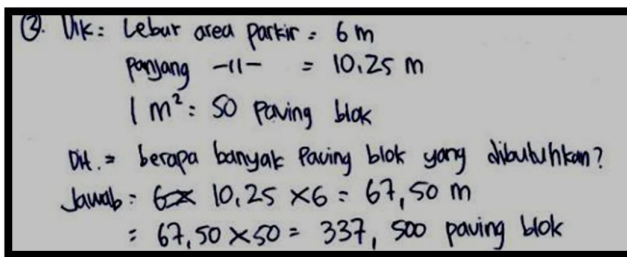 ③. Dik: Lebar area parkir = 6 m
Panjang -11- = 10,25 m
1 m² = 50 Paving blok
Dit. = berapa banyak Paving blok yang dibutuhkan?
Jawab = 10,25 ×6 = 67,50 m
= 67,50 ×50 = 337, 500 paving blok